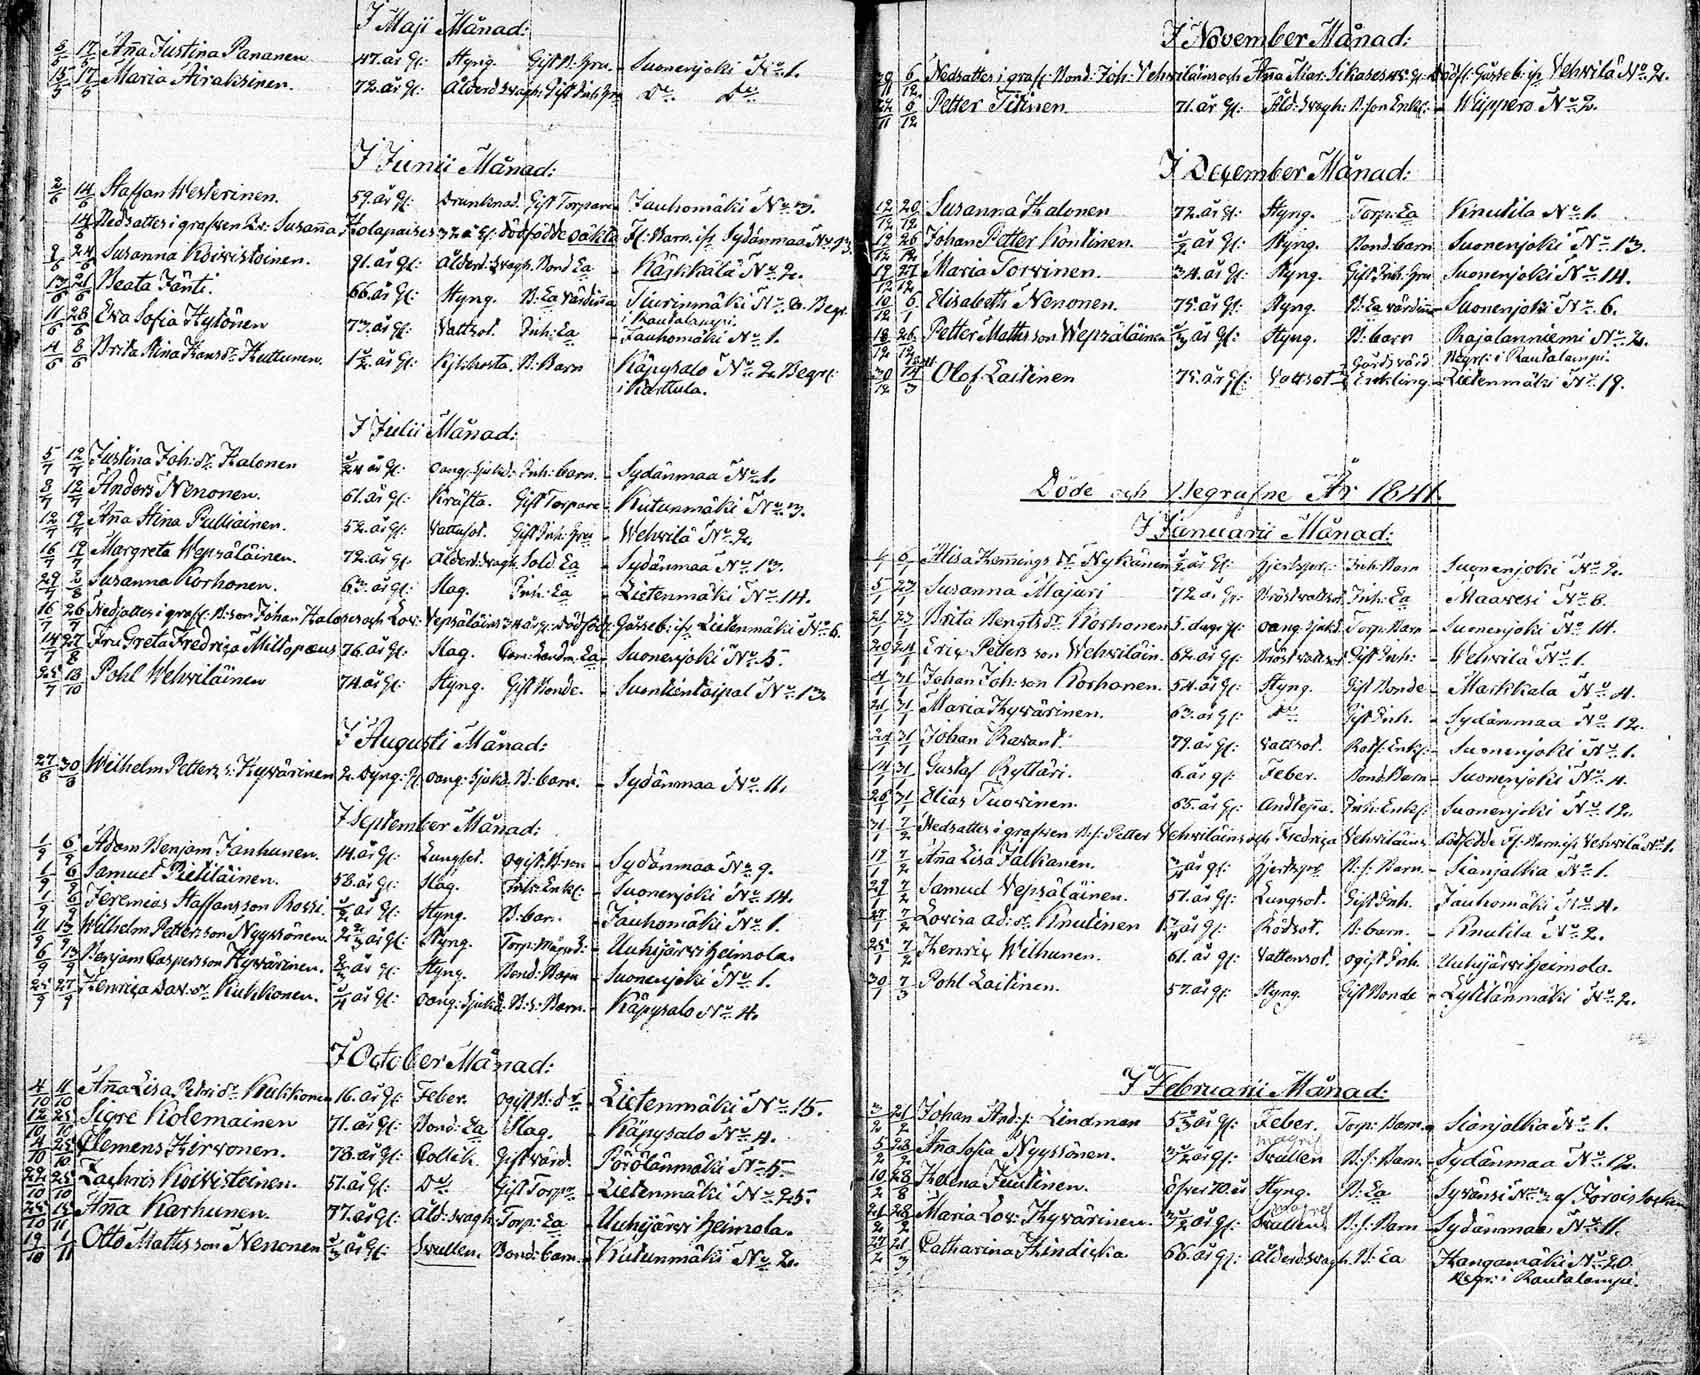 I Maji Månad:
5/5 17/5 Aña Justina Pananen 47. år Gl: Styng. Gift B: Gru. - Suonenjoki No 1.
15/5 17/5 Maria Airaksinen. 72. år Gl: Ålderd.svagh: Gift Inh: Gru Do Do
I Junii Månad:
2/6 14/6 Staffan Westerinen. 59. år Gl: Drunknad. Gift Torpare - Jauhomäki No 3.
14/6 Nedsattes i grafven Susaña dödfödde Fl: Barn. ifr. Sydänmaa No 13.
9/6 24/6 Susanna Koivistoinen. 91. år Gl: Ålderd:svagh. Bond Ea - Kärkkälä No 2.
13/6 21/6 Beata Jänti. 66. år Gl: Styng. B: Ea värdiña - Tiurinmäki No 6. Begr:
i Rautalampi.
11/6 28/6 Eva Sofia Hytönen 73. år Gl: Vattsot. Inh: Ea - Jauhomäki No 1.
4/6 8/6 Brita Stina Hansdr Huttunen. 1 1/2. år Gl: Kikhosta. B: Barn Käpysalo No 2 Begr:
i Karttula.
I Julii Månad:
5/7 12/7 Justina Joh: dr Halonen år Gl: oang. Sjukd: Inh: barn. - Sydänmaa No 1.
8/7 12/7 Anders Nenonen. 61. år Gl: Kräfta. Gift Torpare - Kutunmäki No 3.
12/7 19/7 Aña Stina Pulliainen. 52. år Gl: Vattusot. Gift Inh: Gru - Wehvilä No 2.
16/7 19/7 Margreta Wepsäläinen. 72. år Gl: Ålderd.svagh Sold. Ea - Sydänmaa No 13.
29/7 2/8 Susanna Korhonen. 63. år Gl: Slag. Inh: Ea - Lietenmäki No 14.
16/7 26/7 Nedsattes i grafv: B: son Johan Halosesoch Lov: Vepsäläins 34 år Gl: dödfödt Gosseb: ifr Lietenmäki No 6.
14/7 27/8 Fru Greta Fredrica Miltopæus 76. år Gl: Slag. Ea - Suonenjoki No 5.
25/7 18/10 Pohl Wehviläinen 74. år Gl: Styng. Gift Bonde. - Suontientaipal No 13.
I Augusti Månad:
27/8 30/8 Wilhelm Petters s: Hyvärinen 2. Dyng: Gl oang: Sjukd. B: barn. - Sydänmaa No 11.
I September Månad:
1/9 6/9 Adam Benjam Janhunen. 14. år Gl: Lungsot. ogift B: son - Sydänmaa No 9.
1/9 6/9 Samuel Pietiläinen. 58. år Gl: Slag. Inh: Enkl: - Suonenjoki No 14.
1/9 6/9 Jeremias Staffansson Rossi. 1/2 år Gl: Styng. B: barn. - Jauhomäki No 1.
11/9 13/9 Wilhelm Pettersson Nyyssönen. 2 2/3 år Gl: Styng. Torp: Måg: - Uuhijärvi Heimola.
6/9 13/9 Benjam Caspersson Hyvärinen. år Gl: Styng. Bond: Barn - Suonenjoki No 1.
25/9 27/9 Henrica Dav: dr Kukkonen. 1/4 år Gl: oang: Sjukd: B: s: Barn. - Käpysalo No 4.
I October Månad:
4/10 11/10 Aña Lisa Petri dr Kukkonen 16. år Gl: Feber. ogift B: dr - Lietenmäki No 15.
12/10 25/10 Sigre Kolemainen 71. år Gl: Bond: Ea Slag. - Käpysalo No 4.
4/10 25/10 Clemens Hirvonen. 78. år Gl: Collik. Gift värd. - Pörölänmäki No 5.
22/10 25/10 Zachris Koivistoinen. 51. år Gl: Do Gift Torpre - Lietenmäki No 25.
25/10 15/11 Aña Karhunen. 77. år Gl: Åld: svagh. Torp: Ea - Uuhijärvi Heimola.
19/10 1/11 Otto Mattsson Nenonen 1/3 år Gl: Svullen. Bond: barn. - Kutunmäki No 2.
I November Månad:
29/11 6/12 Nedsattes i graf: Bond: Joh: Vehviläins och Aña Mar: Sikases 45. Gl: dödf: Gosseb: ifr Vehvilä No 2.
22/11 6/12 Petter Titinen. 71. år Gl: Åld: svagh: B: son Enkl: - Wippero No 2.
I December Månad:
12/12 20/12 Susanna Halonen 72. år Gl: Styng. Torp: Ea Knutila No 1.
12/12 26/12 Johan Petter Kontinen. 1/2 år Gl: Styng. Bond: barn Suonenjoki No 13.
19/12 27/12 Maria Torvinen. 34. år Gl: Styng. Gift Inh: Gru Suonenjoki No 14.
10/12 6/1 Elisabeth Nenonen. 75. år Gl: Styng. B: Ea värdiñ - Suonenjoki No 6.
18/12 26/12 Petter Mattsson Wepsäläinen 1/3 år Gl: Styng. B: barn Rajalanniemi No 2.
Begr: i Rautalampi.
30/12 14/3 Olof Laitinen 75. år Gl: Vattsot Gårdsvärd Enkling - Lietenmäki No 19.
Döde och Begrafne År 1841.
I Januarii Månad:
4/1 6/1 Alisa Hennings dr Nykänen 1/2 år Gl: Hjertspr: Inh: Barn Suonenjoki No 2.
5/1 23/1 Susanna Majuri 72 år Gl: Bröstvattsot Inh: Ea Maavesi No 6.
21/1 23/1 Brita Bengts dr Korhonen 5. dagr Gl: oang. Sjukd. Torp: Barn - Suonenjoki No 14.
20/1 24/1 Eric Petters son Wehviläin. 62. år Gl: Bröstvattsot Gift Inh: - Wehvilä No 1.
4/1 31/1 Johan Joh: son Korhonen. 54. år Gl: Styng. Gift Bonde - Markkala No 4.
21/1 31/1 Maria Hyvärinen. 63. år Gl: Do Gift Inh. - Sydänmaa No 12.
24/1 31/1 Johan Ravant. 79. år Gl: Vattsot. Enkl: - Suonenjoki No 1.
14/1 31/1 Gustaf Ryttäri. 6. år gl: Feber. Bond: Barn - Suonenjoki No 4.
26/1 31/1 Elias Tuovinen. 65. år Gl: Andtäppa. Inh: Enkl: - Suonenjoki No 12.
31/1 7/2 Nedsattes i grafven B: s: Petter Vehviläins och Fredrica Vehviläins dödfödde Fl: Barn ifr Vehvilä No 1.
12/1 7/2 Aña Lisa Jalkanen. 3/4 år gl: Hjertspr B: s: Barn. - Sianjalka No 1.
29/1 7/2 Samuel Vepsäläinen. 51. år Gl: Lungsot. Gift Inh. Jauhomäki No 4.
27/1 7/2 Lovisa Ad: dr Knutinen år Gl: Rödsot. B: barn. - Knutila No 2.
25/1 7/2 Henric Wilhunen. 61. år Gl: Vattensot. ogift Inh. Uuhijärvi Heimola.
30/1 7/3 Pohl Laitinen. 57. år Gl: Styng. Gift Bonde - Lyytilänmäki No 2.
I Februarii Månad:
3/2 21/2 Johan And: s: Lindman år Gl: Feber. Torp: Barn. Sianjalka No 1.
5/2 28/2 Aña Sofia Nyyssönen. år Gl: magref Svullen B: s: Barn. - Sydänmaa No 12.
10/2 28/8 Helena Juutinen. öfver 70. år Styng. B: Ea Syvänsi No 2 af Jorois Sockn
21/2 28/2 Maria Lov: Hyvärinen. år Gl: magref Svullen B: s: Barn Sydänmaa No 11.
27/2 21/3 Catharina Hindicka 66. år Gl: Ålderd:svagh. B: Ea Kangamäki No 20.
Begr: i Rautalampi.